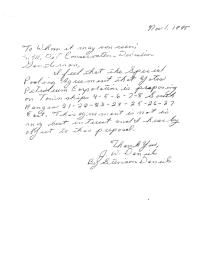 Nov 1, 1985
To Whom it may concern:
Conservation Division
Gentleman,
I feel that the Special
Pooling Agreement that Yates
Petroleum Corporation is proposing
on Townships 4-5-6-7-8 South
Ranges 21-22-23-24-25-26-27
East. This agreement is not in
my best interest and I hereby
object to this proposal.
Thank You,
J. W. Daniels
By